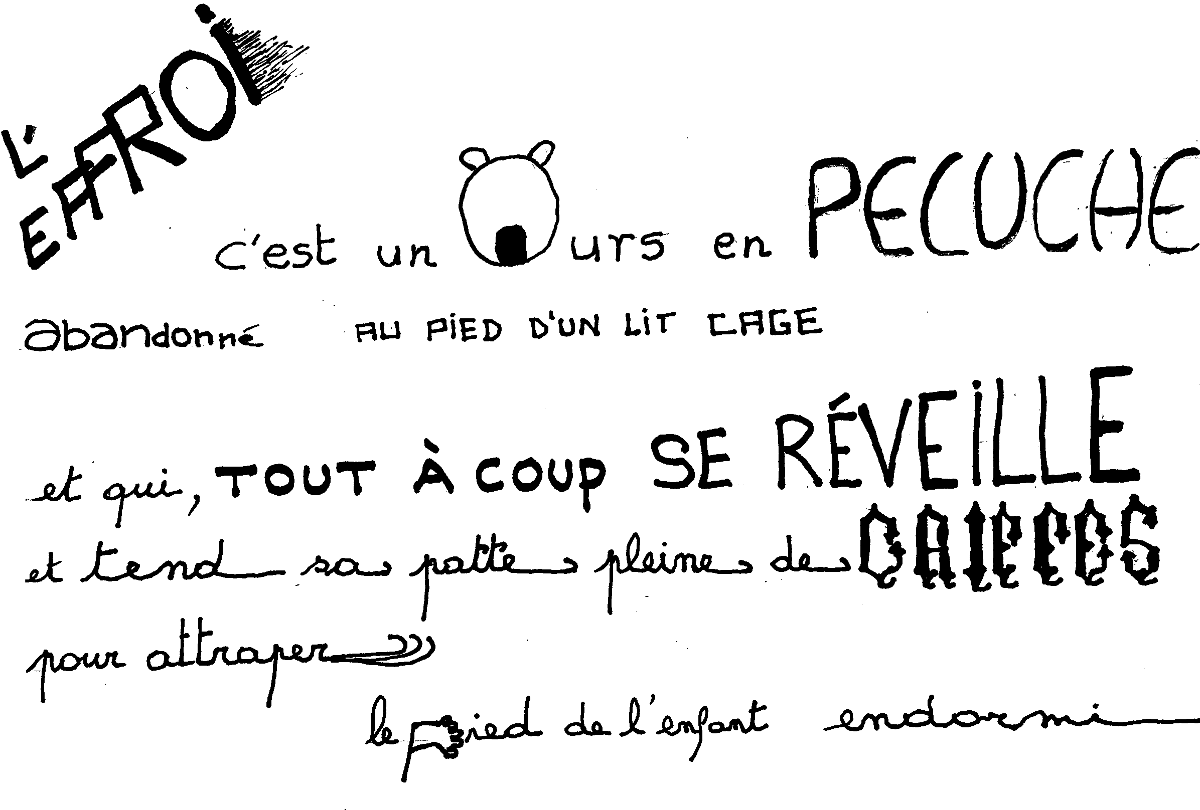 L'
EFFROI
c'est un Ours en PECUCHE
abandonné AU PiED D'UN LiT CAGE
et qui, TOUT À COUP SE RÉVEiLLE
et tend sa patte pleine de GRIFFES
pour attraper
le pied de l'enfant endormi